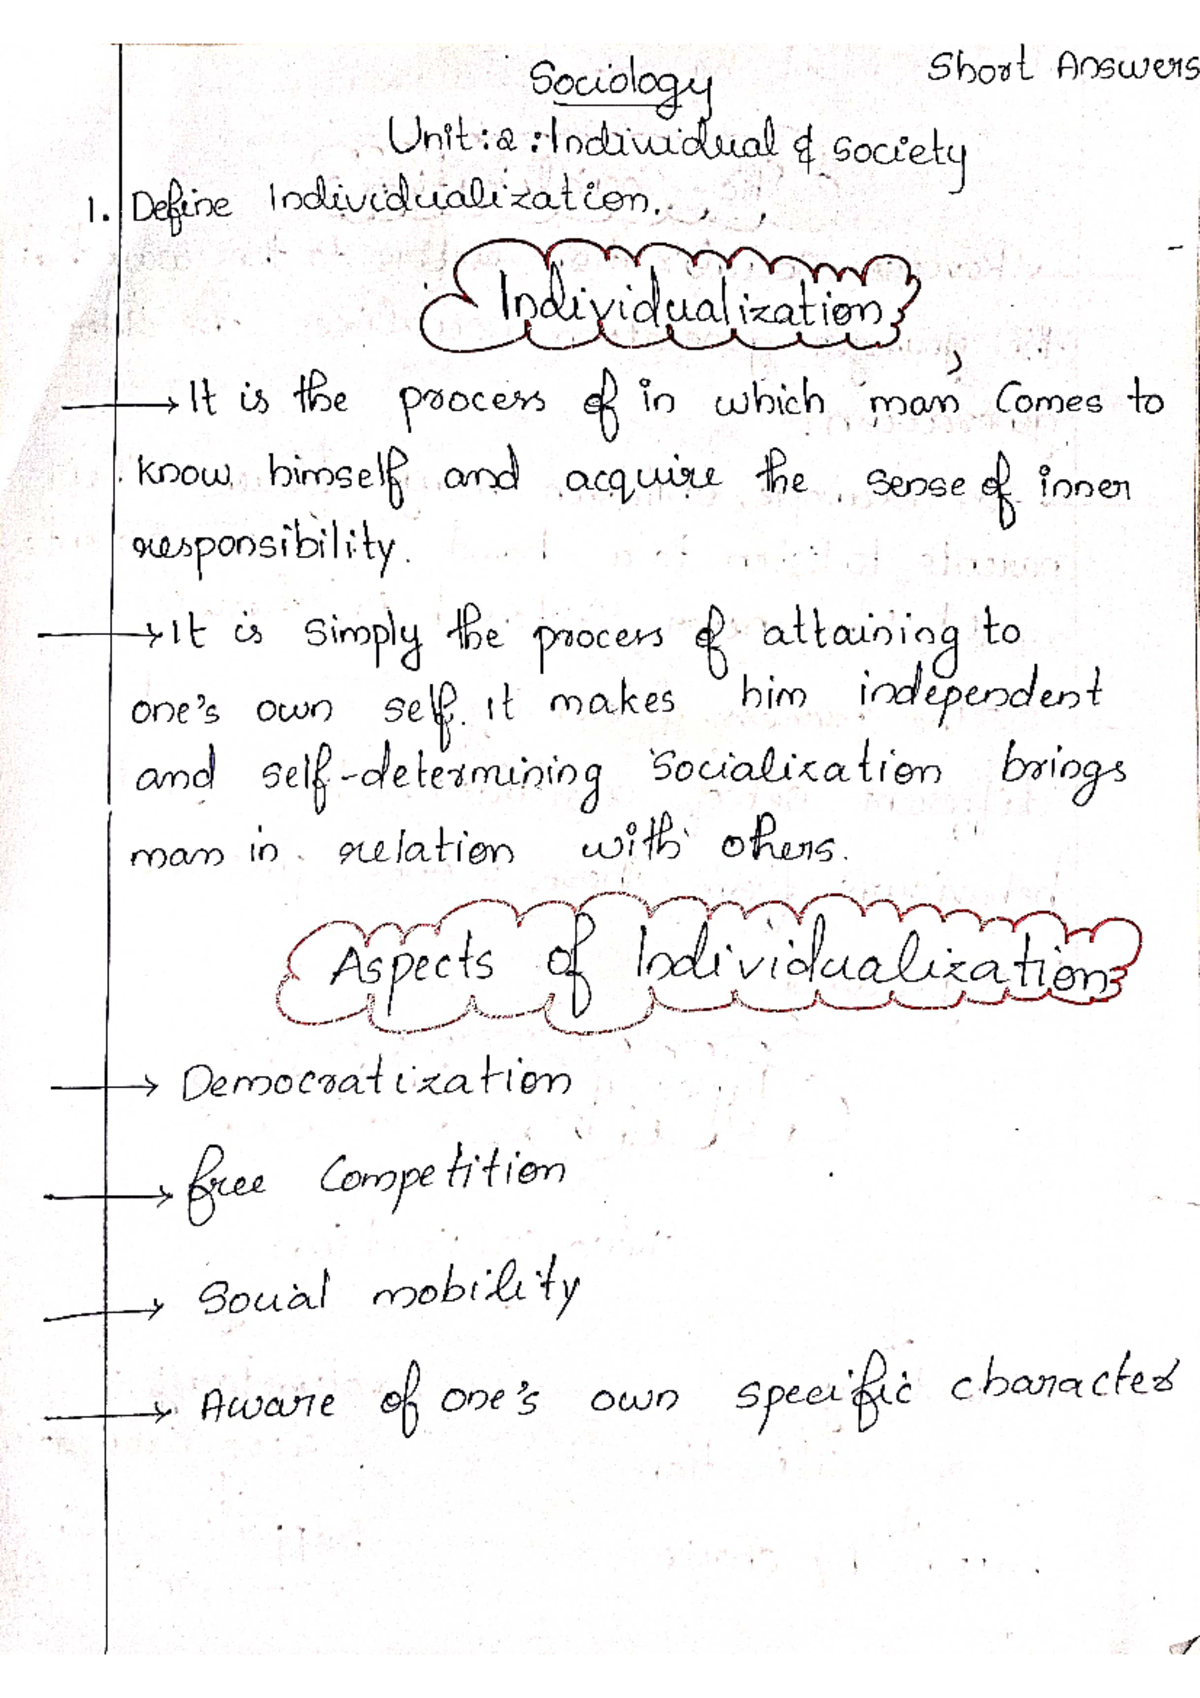 Short Answers
Sociology
Unit:2:Individual & society
1. Define Individualization.
Individualization
→It is the process of in which man comes to
know himself and acquire the sense of inner
responsibility.
→It is simply the process of attaining to
one's own self. it makes him independent
and self-determining socialization brings
man in relation with others.
Aspects of Individualization
→ Democratization
→ free Competition
→ Social mobility
→ Aware of one's own specific character